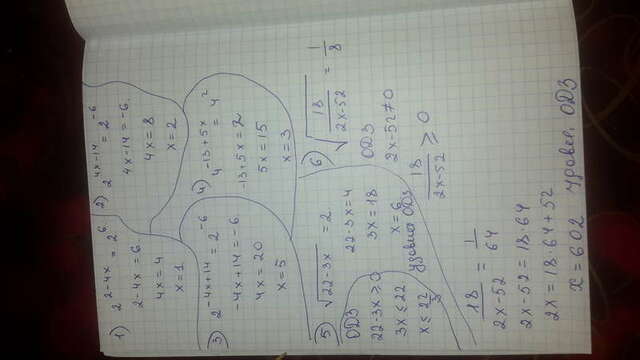 1) 2^{2-4x} = 2^{6}
2-4x=6
4x=4
x=1
2) 2^{4x-14} = 2^{-6}
4x-14=-6.
4x=8
x=2
3) 2^{-4x+14} = 2^{-6}
-4x+14=-6
4x=20
x=5
4) 4^{-13+5x} = 4^{2}
-13+5x=2
5x=15
x=3
5) √(22-3x) = 2.
ОДЗ
22-3x≥0
3x≤22
x≤22/3
22-3x=4
3x=18
x=6
ОДЗ
6) √(18/(2x-52)) = 1/8
ОДЗ
2x-52≠0
18/(2x-52) ≥ 0
18/(2x-52) = 1/64
2x-52=18·64
2x=18·64+52
x=602 ОДЗ